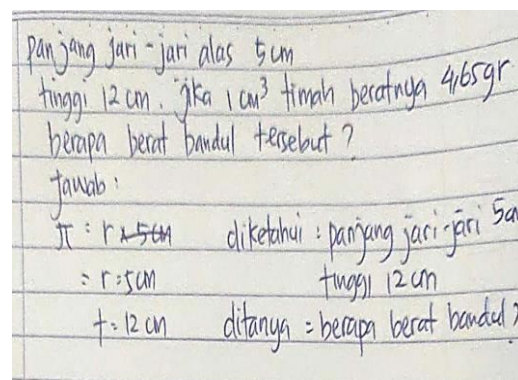 panjang jari-jari alas 5 cm
tinggi 12 cm. jika 1 cm³ timah beratnya 4,65gr
berapa berat bandul tersebut?
Jawab:
π : r x 5cm diketahui : panjang jari-jari 5cm
= r = 5cm tinggi 12 cm
t = 12 cm ditanya = berapa berat bandul?